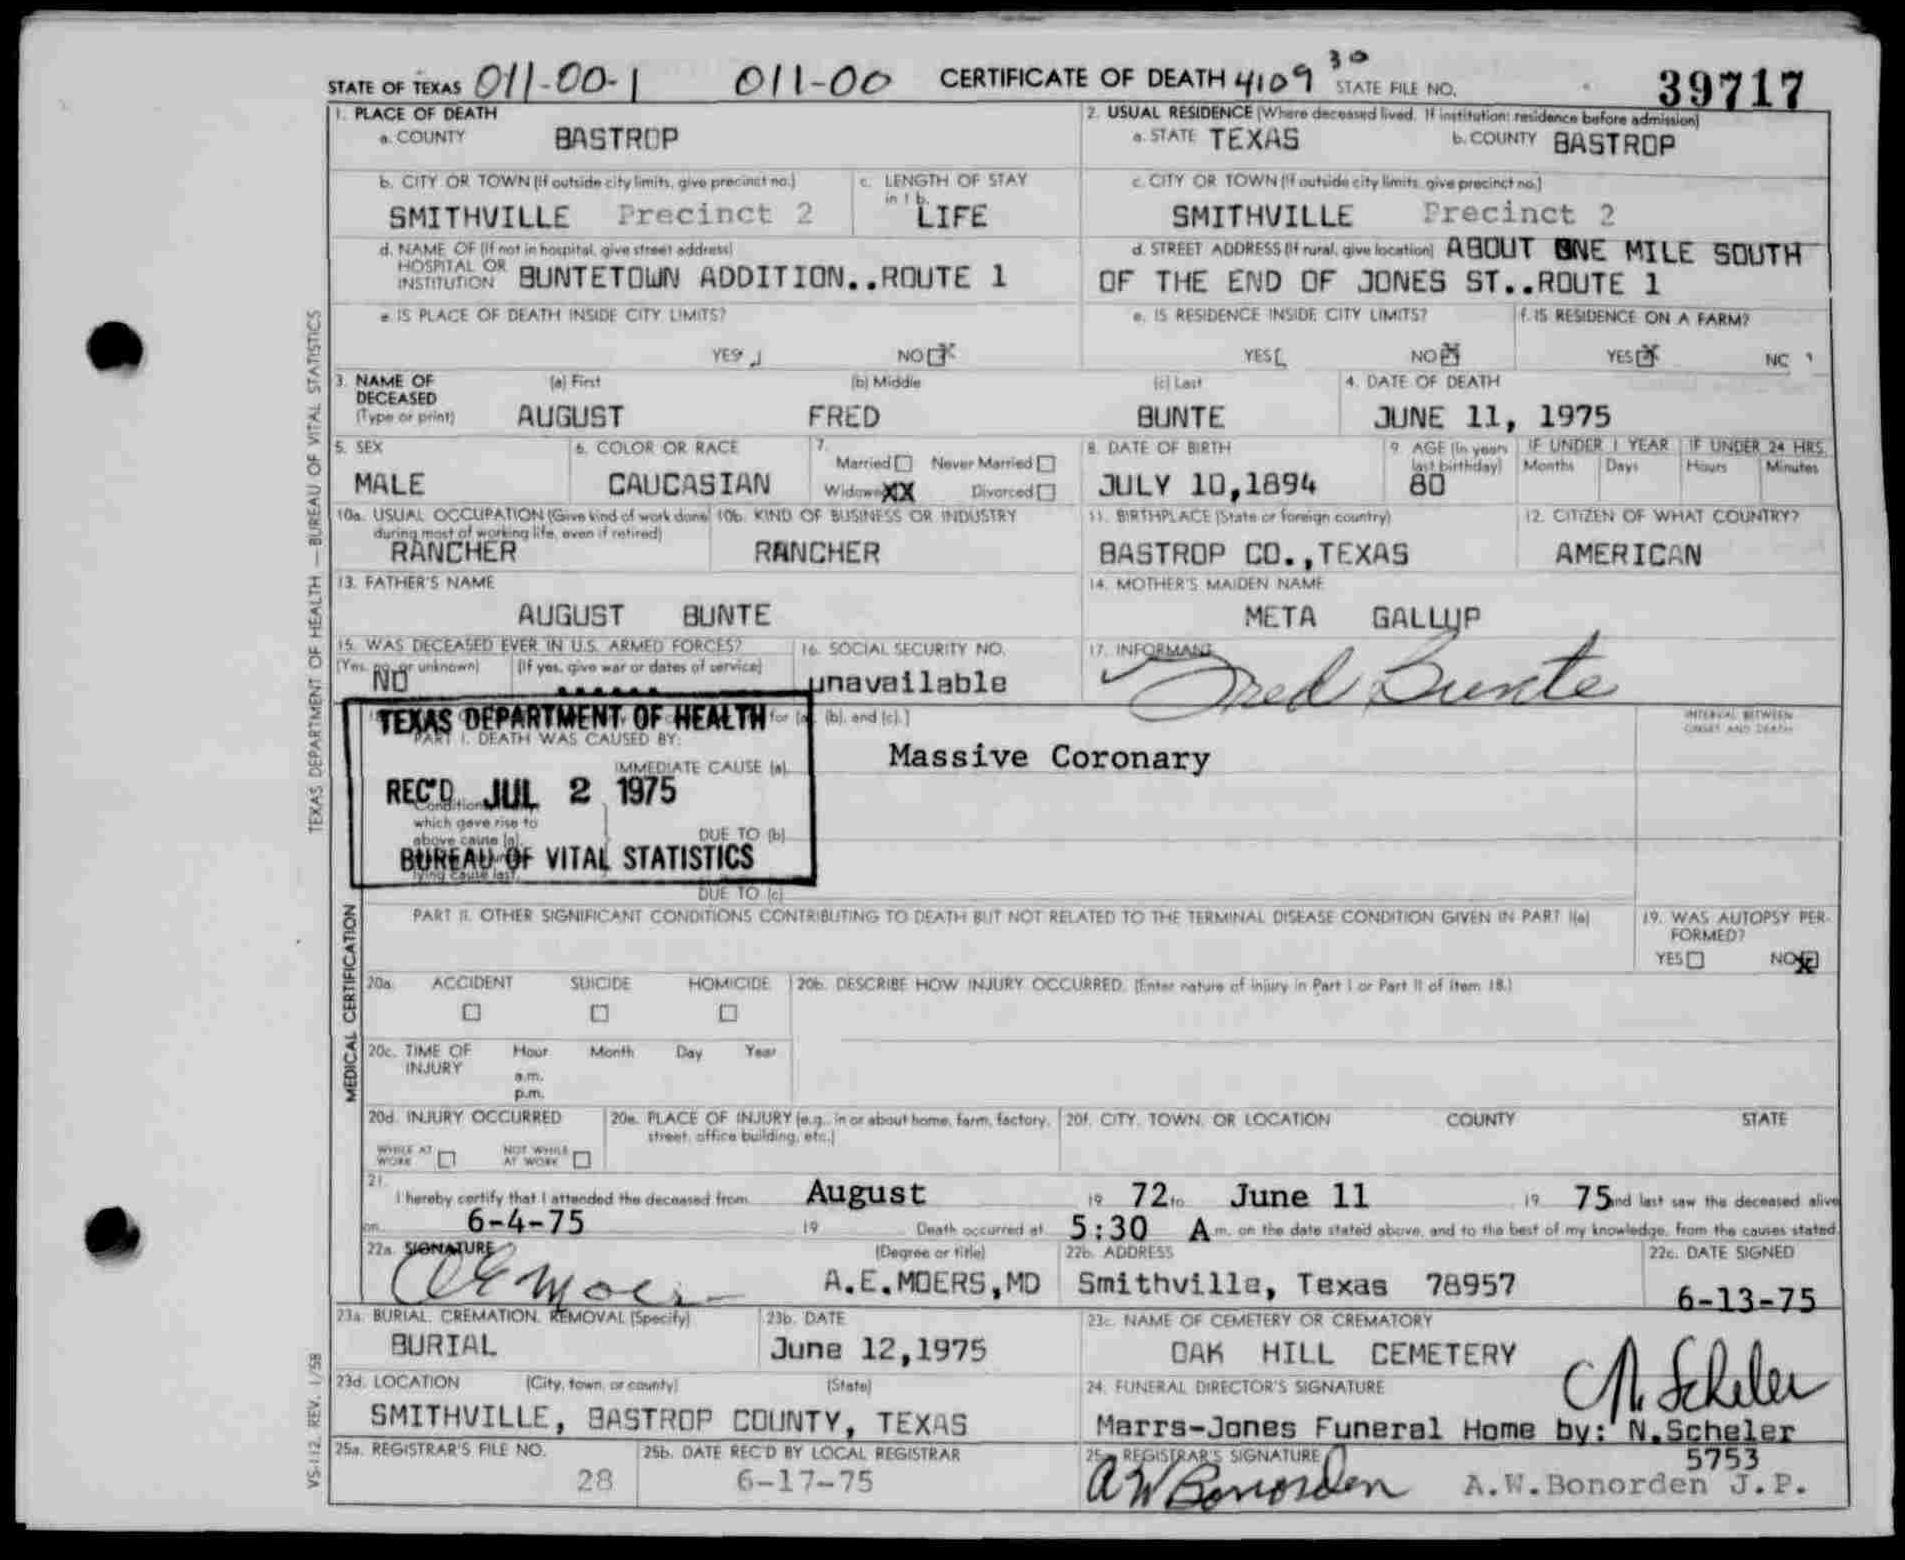 STATE OF TEXAS 011-00-1 011-00 CERTIFICATE OF DEATH 4109 30 STATE FILE NO. 39717
1. PLACE OF DEATH
a. COUNTY BASTROP
2. USUAL RESIDENCE (Where deceased lived. If institution: residence before admission)
a. STATE TEXAS b. COUNTY BASTROP
b. CITY OR TOWN (If outside city limits, give precinct no.)
SMITHVILLE Precinct 2
c. LENGTH OF STAY in 1 b.
LIFE
c. CITY OR TOWN (If outside city limits, give precinct no.)
SMITHVILLE Precinct 2
d. NAME OF (If not in hospital, give street address)
HOSPITAL OR
INSTITUTION BUNTETOWN ADDITION..ROUTE 1
d. STREET ADDRESS (If rural, give location) ABOUT ONE MILE SOUTH
OF THE END OF JONES ST..ROUTE 1
e. IS PLACE OF DEATH INSIDE CITY LIMITS?
YES NO X
e. IS RESIDENCE INSIDE CITY LIMITS?
YES NO X
f. IS RESIDENCE ON A FARM?
YES X NO
3. NAME OF DECEASED (Type or print)
(a) First (b) Middle (c) Last
AUGUST FRED BUNTE
4. DATE OF DEATH
JUNE 11, 1975
5. SEX
MALE
6. COLOR OR RACE
CAUCASIAN
7.
Married Never Married
Widowe XX Divorced
8. DATE OF BIRTH
JULY 10,1894
9. AGE (In years last birthday)
80
IF UNDER 1 YEAR IF UNDER 24 HRS.
Months Days Hours Minutes
10a. USUAL OCCUPATION (Give kind of work done
during most of working life, even if retired)
RANCHER
10b. KIND OF BUSINESS OR INDUSTRY
RANCHER
11. BIRTHPLACE (State or foreign country)
BASTROP CO.,TEXAS
12. CITIZEN OF WHAT COUNTRY?
AMERICAN
13. FATHER'S NAME
AUGUST BUNTE
14. MOTHER'S MAIDEN NAME
META GALLUP
15. WAS DECEASED EVER IN U.S. ARMED FORCES?
(Yes, no, or unknown) (If yes, give war or dates of service)
NO
16. SOCIAL SECURITY NO.
unavailable
17. INFORMANT
Fred Bunte
TEXAS DEPARTMENT OF HEALTH
REC'D JUL 2 1975
BUREAU OF VITAL STATISTICS
for (a), (b), and (c).]
INTERVAL BETWEEN
ONSET AND DEATH
PART I. DEATH WAS CAUSED BY:
IMMEDIATE CAUSE (a) Massive Coronary
which gave rise to
above cause (a),
lying cause last.
DUE TO (b)
DUE TO (c)
PART II. OTHER SIGNIFICANT CONDITIONS CONTRIBUTING TO DEATH BUT NOT RELATED TO THE TERMINAL DISEASE CONDITION GIVEN IN PART I(a)
19. WAS AUTOPSY PER-
FORMED?
YES NO X
20a. ACCIDENT SUICIDE HOMICIDE
20b. DESCRIBE HOW INJURY OCCURRED. (Enter nature of injury in Part I or Part II of item 18.)
20c. TIME OF INJURY
Hour Month Day Year
a.m.
p.m.
20d. INJURY OCCURRED
WHILE AT WORK NOT WHILE AT WORK
20e. PLACE OF INJURY (e.g., in or about home, farm, factory,
street, office building, etc.)
20f. CITY, TOWN, OR LOCATION COUNTY STATE
21.
I hereby certify that I attended the deceased from August 19 72 to June 11 19 75 nd last saw the deceased alive
on 6-4-75 19 Death occurred at 5:30 A m. on the date stated above, and to the best of my knowledge, from the causes stated.
22a. SIGNATURE (Degree or title)
AE Moers A.E.MOERS,MD
22b. ADDRESS
Smithville, Texas 78957
22c. DATE SIGNED
6-13-75
23a. BURIAL, CREMATION, REMOVAL (Specify)
BURIAL
23b. DATE
June 12,1975
23c. NAME OF CEMETERY OR CREMATORY
OAK HILL CEMETERY
23d. LOCATION (City, town, or county) (State)
SMITHVILLE, BASTROP COUNTY, TEXAS
24. FUNERAL DIRECTOR'S SIGNATURE
N. Scheler
Marrs-Jones Funeral Home by: N.Scheler
5753
25a. REGISTRAR'S FILE NO.
28
25b. DATE REC'D BY LOCAL REGISTRAR
6-17-75
25c. REGISTRAR'S SIGNATURE
AW Bonorden A.W.Bonorden J.P.
TEXAS DEPARTMENT OF HEALTH — BUREAU OF VITAL STATISTICS
MEDICAL CERTIFICATION
VS-112, REV. 1/58